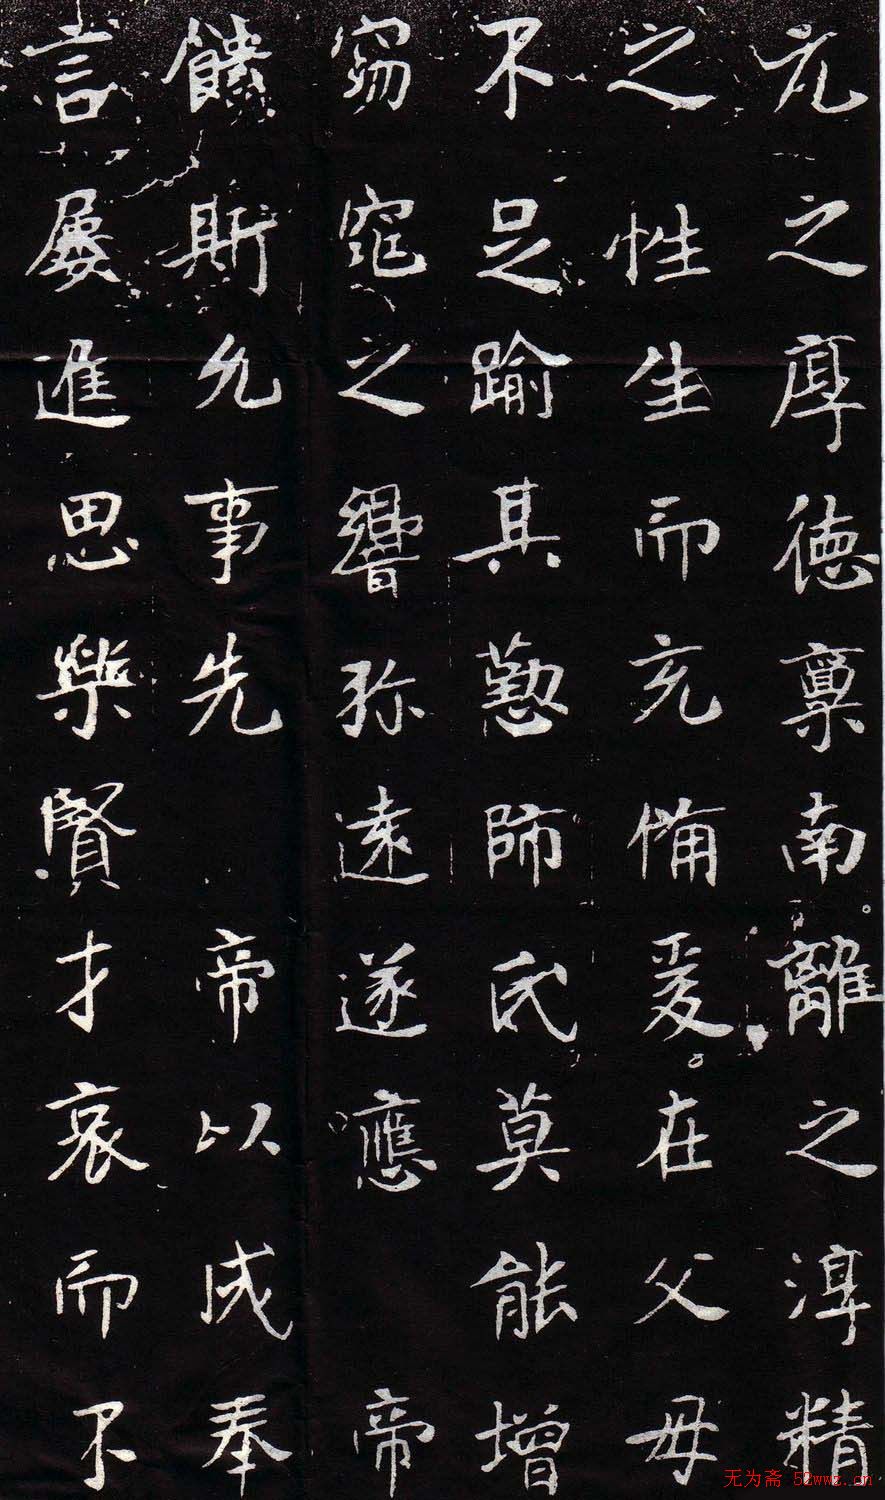 元之厚德禀南離之淳精
之性生而充備爰在父母
不足踰其懃師氏莫能增
窈窕之響弥遠遂應帝
饋斯允事先帝以成奉
言屢進思樂賢才哀而不
无为斋 52wwz.cn